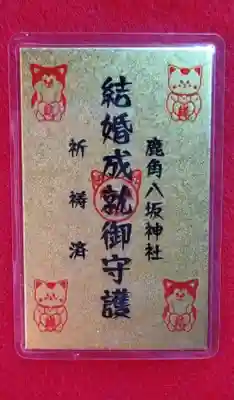 鹿角八坂神社
結婚成就御守護
祈祷済